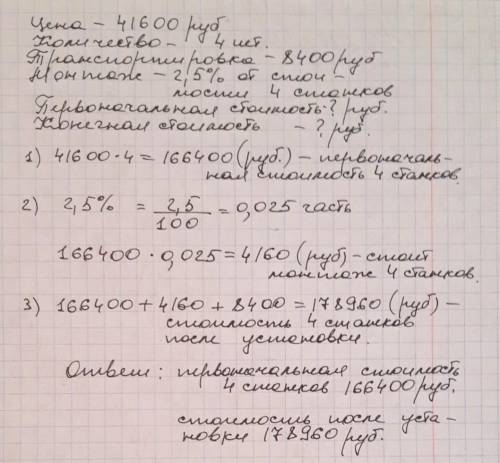 Цена - 41600 руб
Количество - 4 шт.
Транспортировка - 8400 руб
Монтаж - 2,5% от стои-
мости 4 станков
Первоначальная стоимость? руб.
Конечная стоимость - ? руб.
1) 41600 · 4 = 166400 (руб.) - первоначаль-
ная стоимость 4 станков.
2) 2,5% = 2,5/100 = 0,025 часть
166400 · 0,025 = 4160 (руб) - стоит
монтаж 4 станков.
3) 166400 + 4160 + 8400 = 178960 (руб) -
стоимость 4 станков
после установки.
Ответ: первоначальная стоимость
4 станков 166400 руб.
стоимость после уста-
новки 178960 руб.